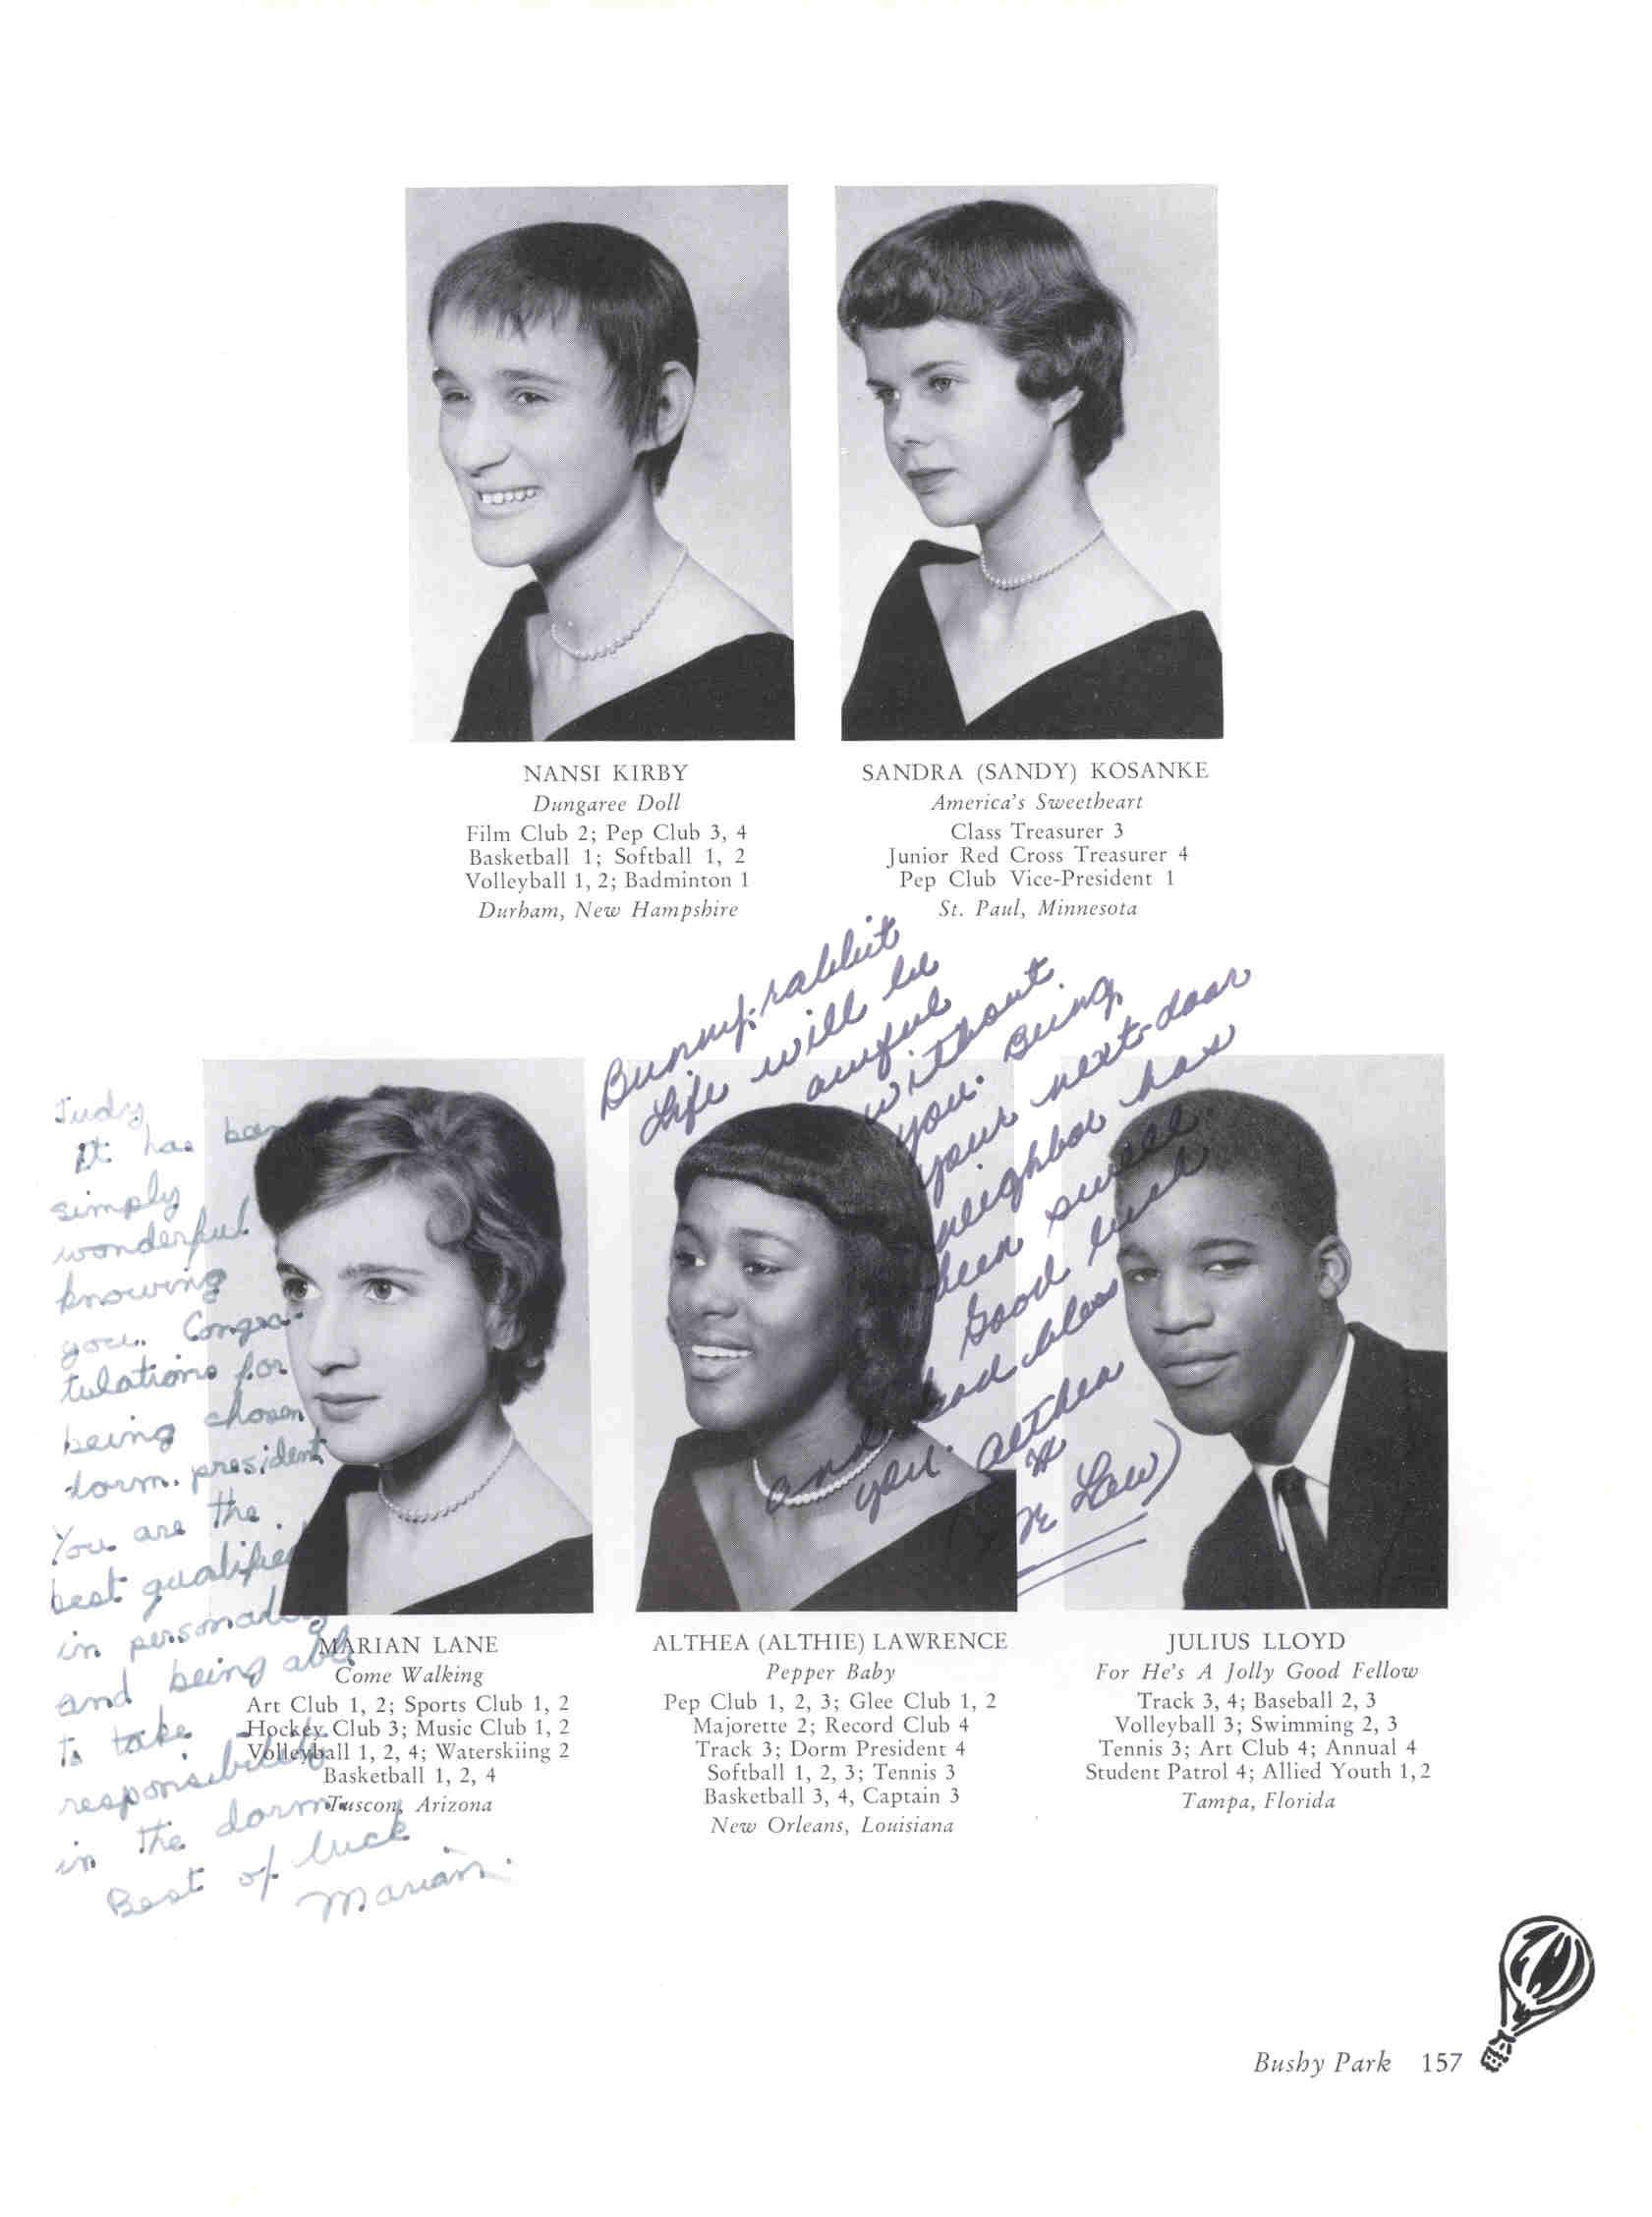 NANSI KIRBY
Dungaree Doll
Film Club 2; Pep Club 3, 4
Basketball 1; Softball 1, 2
Volleyball 1, 2; Badminton 1
Durham, New Hampshire
SANDRA (SANDY) KOSANKE
America's Sweetheart
Class Treasurer 3
Junior Red Cross Treasurer 4
Pep Club Vice-President 1
St. Paul, Minnesota
Bunny rabbit
Life will be
awful
without
you. Being
your next-door
neighbor has
been swell
Good luck
and God bless
you. Althea
Lew)
Judy
It has been
simply
wonderful
knowing
you. Congra-
tulations for
being chosen
dorm. president
You are the
best qualified
in personality
and being able
to take
responsibility
in the dorm.
Best of luck
Marian.
MARIAN LANE
Come Walking
Art Club 1, 2; Sports Club 1, 2
Hockey Club 3; Music Club 1, 2
Volleyball 1, 2, 4; Waterskiing 2
Basketball 1, 2, 4
Tuscon, Arizona
ALTHEA (ALTHIE) LAWRENCE
Pepper Baby
Pep Club 1, 2, 3; Glee Club 1, 2
Majorette 2; Record Club 4
Track 3; Dorm President 4
Softball 1, 2, 3; Tennis 3
Basketball 3, 4, Captain 3
New Orleans, Louisiana
JULIUS LLOYD
For He's A Jolly Good Fellow
Track 3, 4; Baseball 2, 3
Volleyball 3; Swimming 2, 3
Tennis 3; Art Club 4; Annual 4
Student Patrol 4; Allied Youth 1, 2
Tampa, Florida
Bushy Park 157